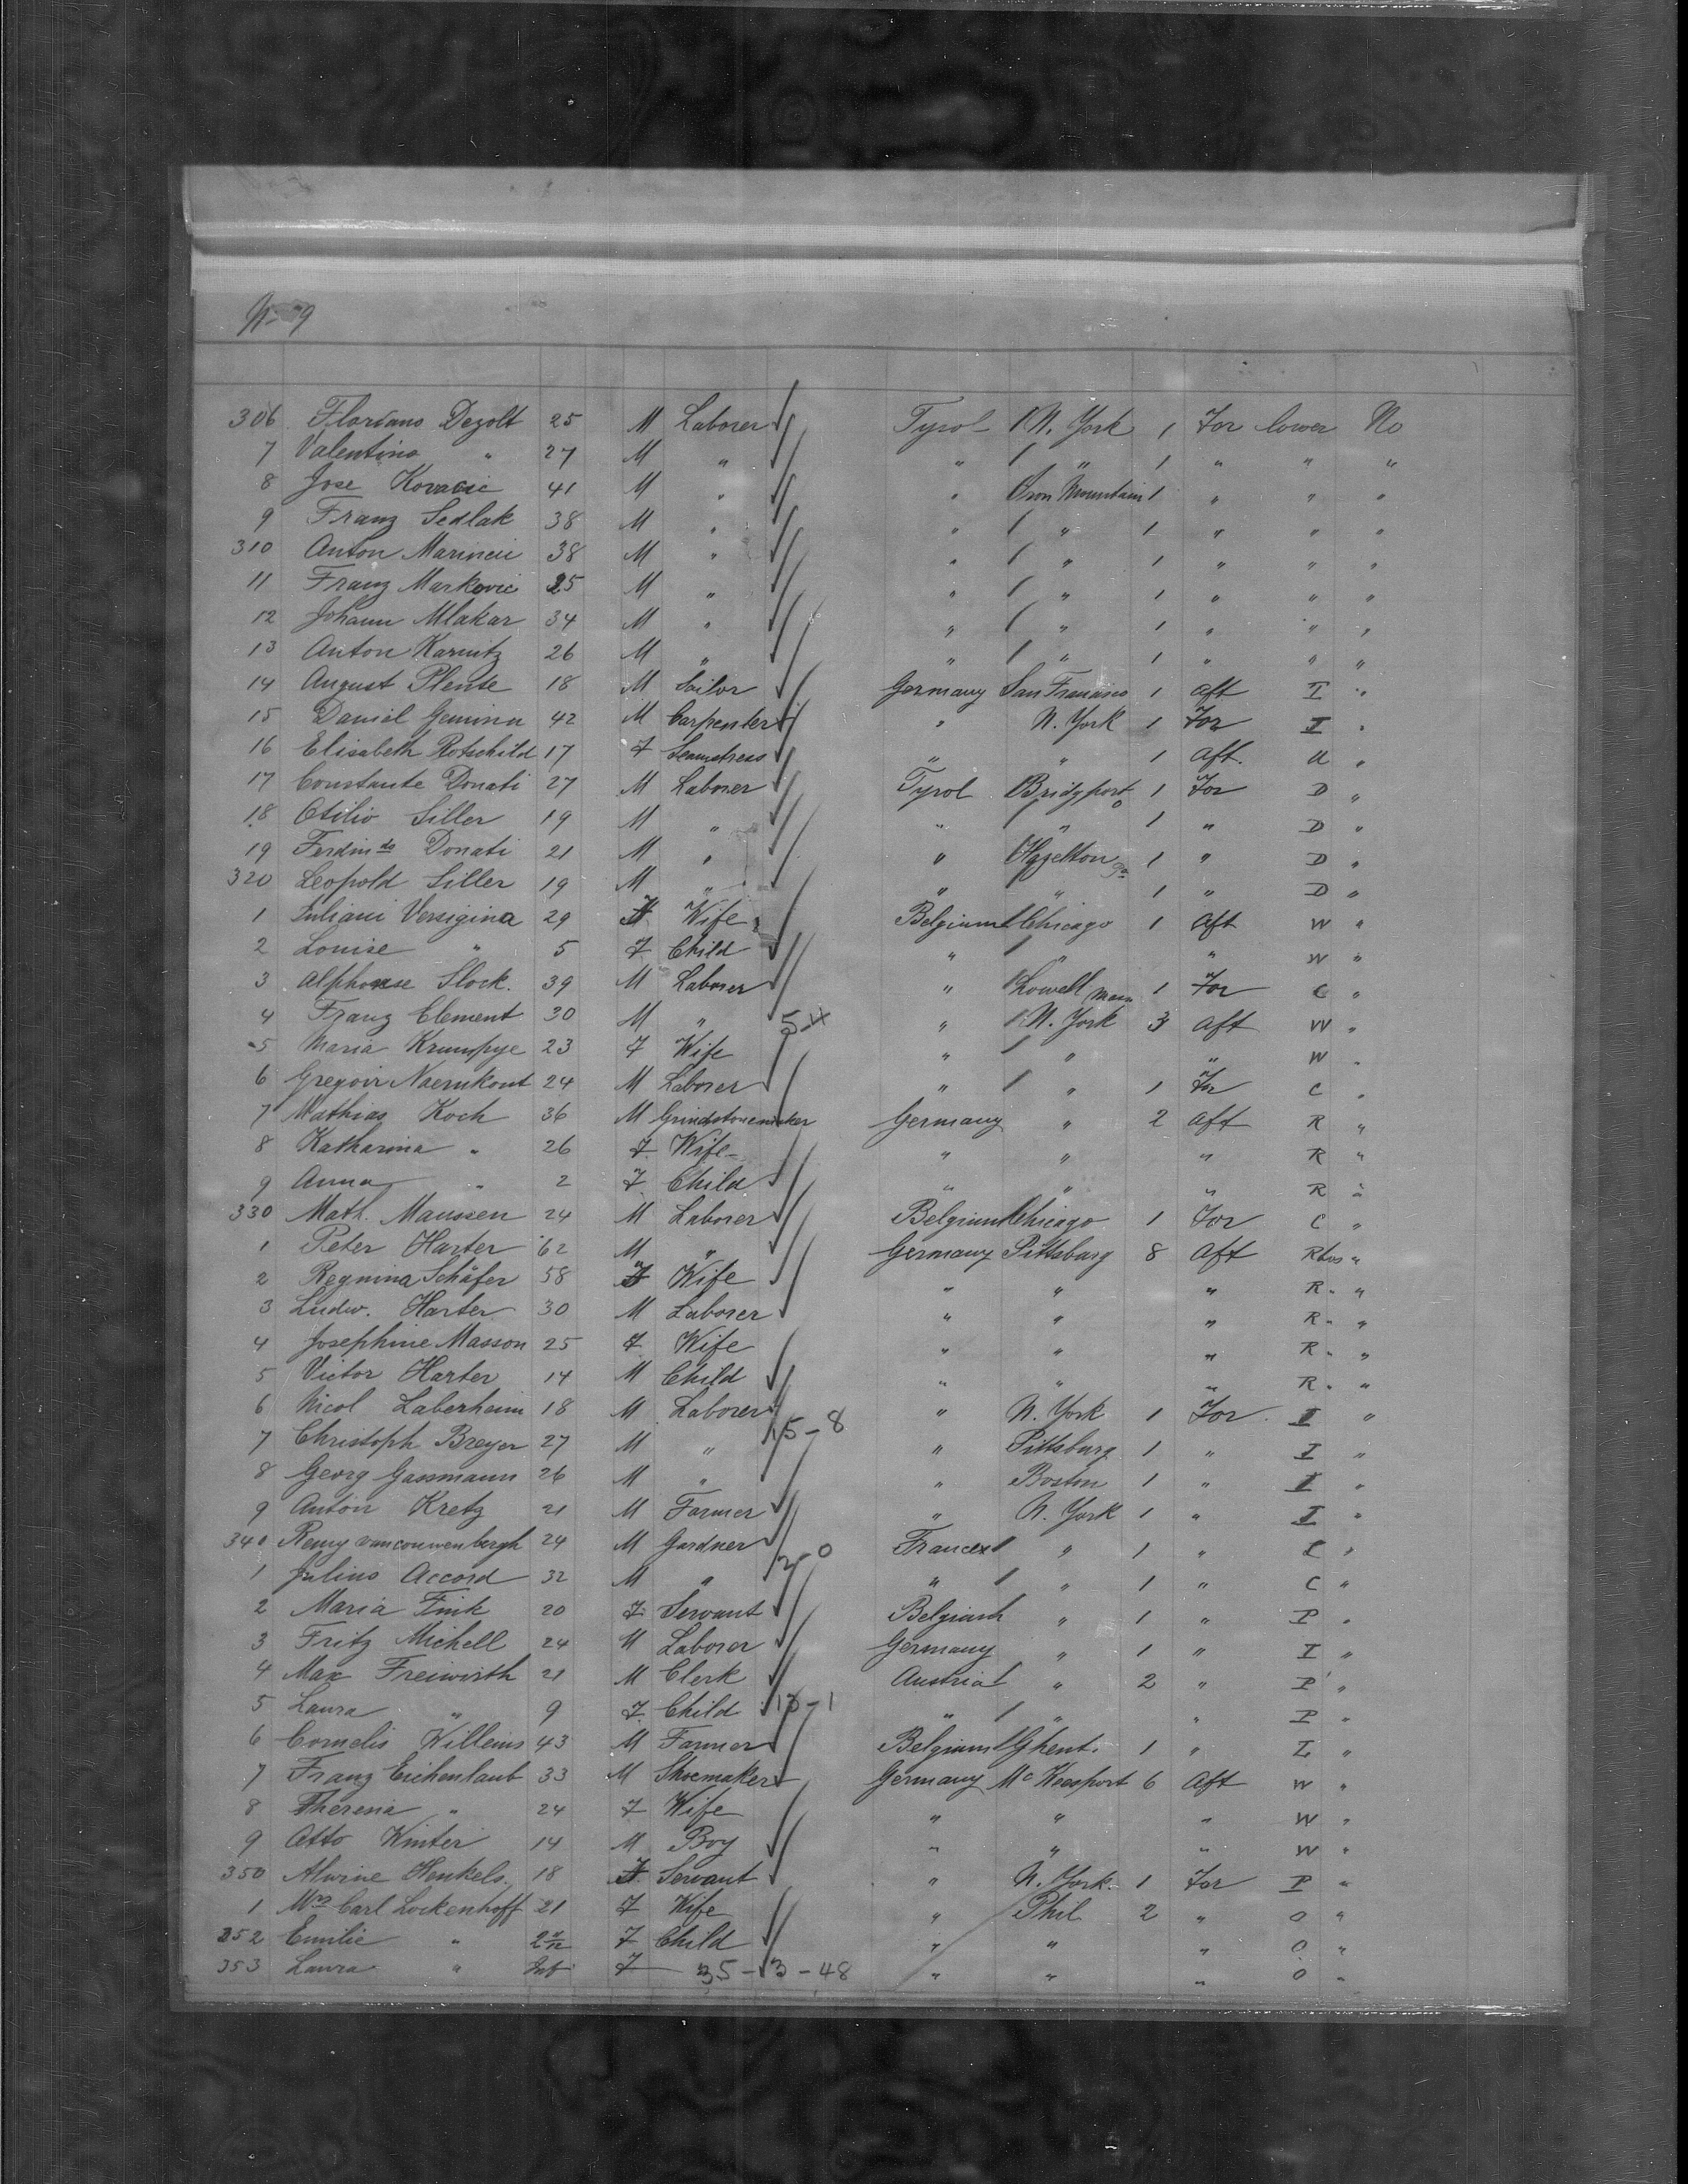 No 9
306 Floriano Dezolt 25 M Laborer Tyrol N. York 1 For lower No
7 Valentino " 27 M " " " 1 " " "
8 Jose Kovacic 41 M " " Iron Mountain 1 " " "
9 Franz Sedlak 38 M " " " 1 " " "
310 Anton Marincic 38 M " " " 1 " " "
11 Franz Markovic 25 M " " " 1 " " "
12 Johann Mlakar 34 M " " " 1 " " "
13 Anton Karnitz 26 M " " " 1 " " "
14 August Plense 18 M Sailor Germany San Francisco 1 Aft I "
15 Daniel 42 M Carpenter " N. York 1 For I "
16 Elisabeth Rotschild 17 F Seamstress " " 1 Aft. U "
17 Constante Donati 27 M Laborer Tyrol Bridgport 1 For D "
18 Otilio Siller 19 M " " " 1 " D "
19 Ferdindo Donati 21 M " " Hazelton Pa 1 " D "
320 Leopold Siller 19 M " " " 1 " D "
1 Juliani Versigina 29 F Wife Belgium Chicago 1 Aft W "
2 Louise " 5 F Child " " " W "
3 Alphonse Slock. 39 M Laborer " Lowell Mass 1 For C "
4 Franz Clement 30 M " 5-4 " N. York 3 Aft W "
5 Maria Krumpye 23 F Wife " " " W "
6 Gregoir Naernkout 24 M Laborer " " 1 For C "
7 Mathias Koch 36 M Grindstonemaker Germany " 2 Aft R "
8 Katharina " 26 F Wife " " " R "
9 Anna " 2 F Child " " " R "
330 Math. Maussen 24 M Laborer Belgium Chicago 1 For C "
1 Peter Harter 62 M " Germany Pittsburg 8 Aft R "
2 Regnina Schäfer 58 F Wife " " " R " "
3 Ludw. Harter 30 M Laborer " " " R " "
4 Josephine Masson 25 F Wife " " " R " "
5 Victor Harter 14 M Child " " " R " "
6 Nicol Laberheim 18 M Laborer " N. York 1 For I "
7 Christoph Breyer 27 M " 15-8 " Pittsburg 1 " I "
8 Georg Gassmann 26 M " " Boston 1 " I "
9 Anton Kretz 21 M Farmer " N. York 1 " I "
340 Remy vancouwenbergh 24 M Gardner France " 1 " C "
1 Julius Accord 32 M " 2-0 " " 1 " C "
2 Maria Fink 20 F Servant Belgium " 1 " P "
3 Fritz Michell 24 M Laborer Germany " 1 " I "
4 Max Freiwirth 21 M Clerk Austria " 2 " P "
5 Laura " 9 F Child 13-1 " " " P "
6 Cornelis Willems 43 M Farmer Belgium Ghent. 1 " L "
7 Franz Eichenlaub 33 M Shoemaker Germany Mc Keesport 6 Aft W "
8 Theresia " 24 F Wife " " " W "
9 Otto Winter 14 M Boy " " " W "
350 Alwine Henkels. 18 F Servant " N. York. 1 For P "
1 Mrs Carl Lockenhoff 21 F Wife " Phil 2 " O "
352 Emilie " F Child " " " O "
353 Laura " Inf F 35-13-48 " " " O "